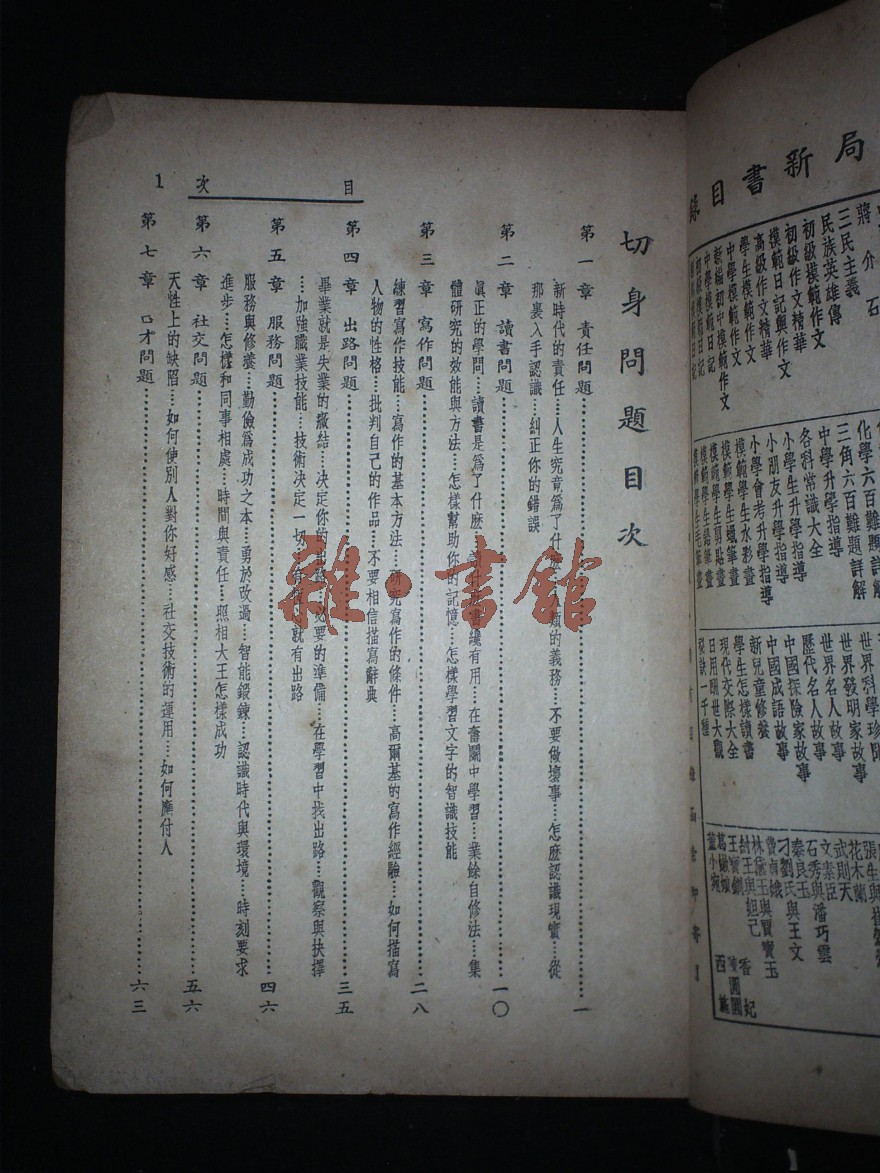 局新書目錄
蔣介石
三民主義
民族英雄傳
初級模範作文
初級作文精華
模範日記與作文
高級作文精華
學生模範作文
中學模範作文
新編初中模範作文
中學模範日記
化學六百難題詳解
三角六百難題詳解
中學升學指導
各科常識大全
小學生升學指導
小朋友升學指導
小學會考升學指導
模範學生水彩畫
模範學生蠟筆畫
模範學生剪貼畫
模範學生鉛筆畫
世界科學珍聞
世界發明家故事
世界名人故事
歷代名人故事
中國探險家故事
中國成語故事
新兒童修養
學生怎樣讀書
現代交際大全
日用晒世大觀
花木蘭
武則天
文素臣
石秀與潘巧雲
秦良玉
刁劉氏與王文
林黛玉與賈寶玉
紂王與妲己
香妃
陳圓圓
董小宛
西施
切身問題目次
目次
1
第一章 責任問題……一
新時代的責任……人生究竟爲了什麽……人類的義務……不要做壞事……怎麽認識現實……從
那裏入手認識……糾正你的錯誤
第二章 讀書問題……一〇
眞正的學問……讀書是爲了什麽……讀書纔有用……在奮鬭中學習……業餘自修法……集
體研究的效能與方法……怎樣幫助你的記憶……怎樣學習文字的智識技能
第三章 寫作問題……二八
練習寫作技能……寫作的基本方法……研究寫作的條件……高爾基的寫作經驗……如何描寫
人物的性格……批判自己的作品……不要相信描寫辭典
第四章 出路問題……三五
畢業就是失業的癥結……決定你的出路……必要的準備……在學習中找出路……觀察與抉擇
……加強職業技能……技術決定一切……就有出路
第五章 服務問題……四六
服務與修養……勤儉爲成功之本……勇於改過……智能鍛鍊……認識時代與環境……時刻要求
進步……怎樣和同事相處……時間與責任……照相大王怎樣成功
第六章 社交問題……五六
天性上的缺陷……如何使別人對你好感……社交技術的運用……如何應付人
第七章 口才問題……六三
雜·書館